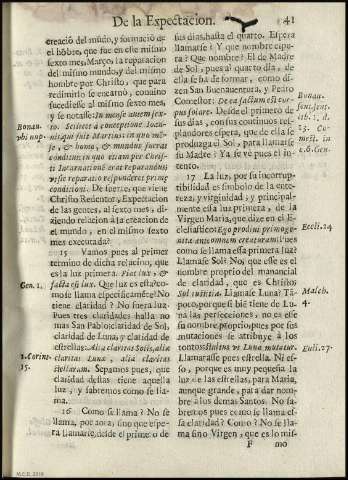 De la Expectacion. 41
creació del mũdo, y formació de
el hõbre, que fue en este mismo
sexto mes, Março, la reparacion
del mismo mundo, y del mismo
hombre por Christo, que para
redimirlo se encarnò, convino
sucediesse al mismo sexto mes,
y se notasse: In mense autem sex-
to. Scilicet à conceptione Ioan-
nis
Bonau.
homo, & mundus fuerat
conditus: in quo etiam per Chris-
ti Incarnationem erat reparandus
vt sic reparatio responderet prime
conditioni. De suerte, que viene
Christo Redentor, Expectacion
de las gentes, al sexto mes, di-
ziendo relacion à la creacion de
el mundo, en el mismo sexto
mes executada?
15 Vamos pues al primer
termino de dicha relacion, que
es la luz primera. Fiat lux, &
Gen. 1.
facta est lux. Que luz es esta? co-
mo se llama especificamẽte? No
tiene claridad? No fuera luz.
Pues tres claridades halla no
mas San Pablo: claridad de Sol,
claridad de Luna, y claridad de
estrellas: Alia claritas Solis, alia
1. Corin.
15.
claritas Lunæ, alia claritas
stellarum. Sepamos pues, que
claridad destas tiene aquella
luz, y sabremos como se lla-
ma.
16 Como se llama? No se
llama, por aora; sino que espe-
ra llamarse, desde el primero de
sus dias, hasta el quarto. Espera
llamarse? Y que nombre espe-
ra? Que nombre? El de Madre
de Sol; pues al quarto dia, de
ella se ha de formar, como di-
zen San Buenaventura, y Pedro
Comestor: De ea factum est cor-
pus solare. Desde el primero de
Bonau.
Comest. in
sus dias, con sus continuos res-
plandores espera, que de ella se
produzga el Sol, para llamarse
su Madre; Ya se vè pues el in-
tento.
17 La luz, por su incorrup-
tibilidad es simbolo de la ente-
reza, y virginidad; y principal-
mente essa luz primera, de la
Virgen Maria, que dize en el E-
clesiastico: Ego prodivi primoge-
Eccli. 24
nita ante omnem creaturam. Pues
como se llama essa primera luz?
Llamase Sol? No; que esse es el
nombre proprio del manancial
de claridad, que es Christo
Sol iustitiæ. Llamase Luna? Tã-
Malach.
4.
poco, porque si bien tiene de Lu-
na las perfecciones, no es esse
su nombre proprio; pues por sus
mutaciones se atribuye à los
tontos: Stultus vt Luna mutatur.
Eccli. 27
Llamarasse pues estrella. Ni es-
so, porque es muy pequeña la
luz de las estrellas, para Maria,
aunque grande, para dar nom-
bre à los demas Santos. No sa-
bremos pues como se llama es-
sa claridad? Como? No se lla-
ma sino Virgen, que es lo mis-
F mo